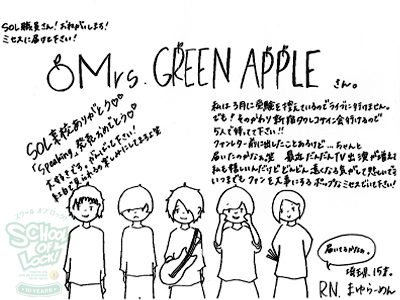 SOL職員さん！おねがいします！
ミセスに届けて下さい！
Mrs. GREEN APPLE さん。
SOL来校ありがとう♡
「Speaking」発売おめでとう♡
大好きです。
私は3月に受験を控えているのでライブに行けません。
でも！そのかわり新宿タワレコサイン会行けるので
5人で待ってて下さい!!
ファンレター前に出したことあるけど…ちゃんと
届いたのかなぁ 笑
最近だんだんTV出演が増えて
私も嬉しいんだけど どんどん遠くなる気がして
いつまでも ファンを大事にする ポップな ミセスでいて下さい！
スクールオブロック！
SCHOOL OF LOCK!
10 YEARS
届いてるかなぁ。
埼玉県 15才
RN. まゆらーめん